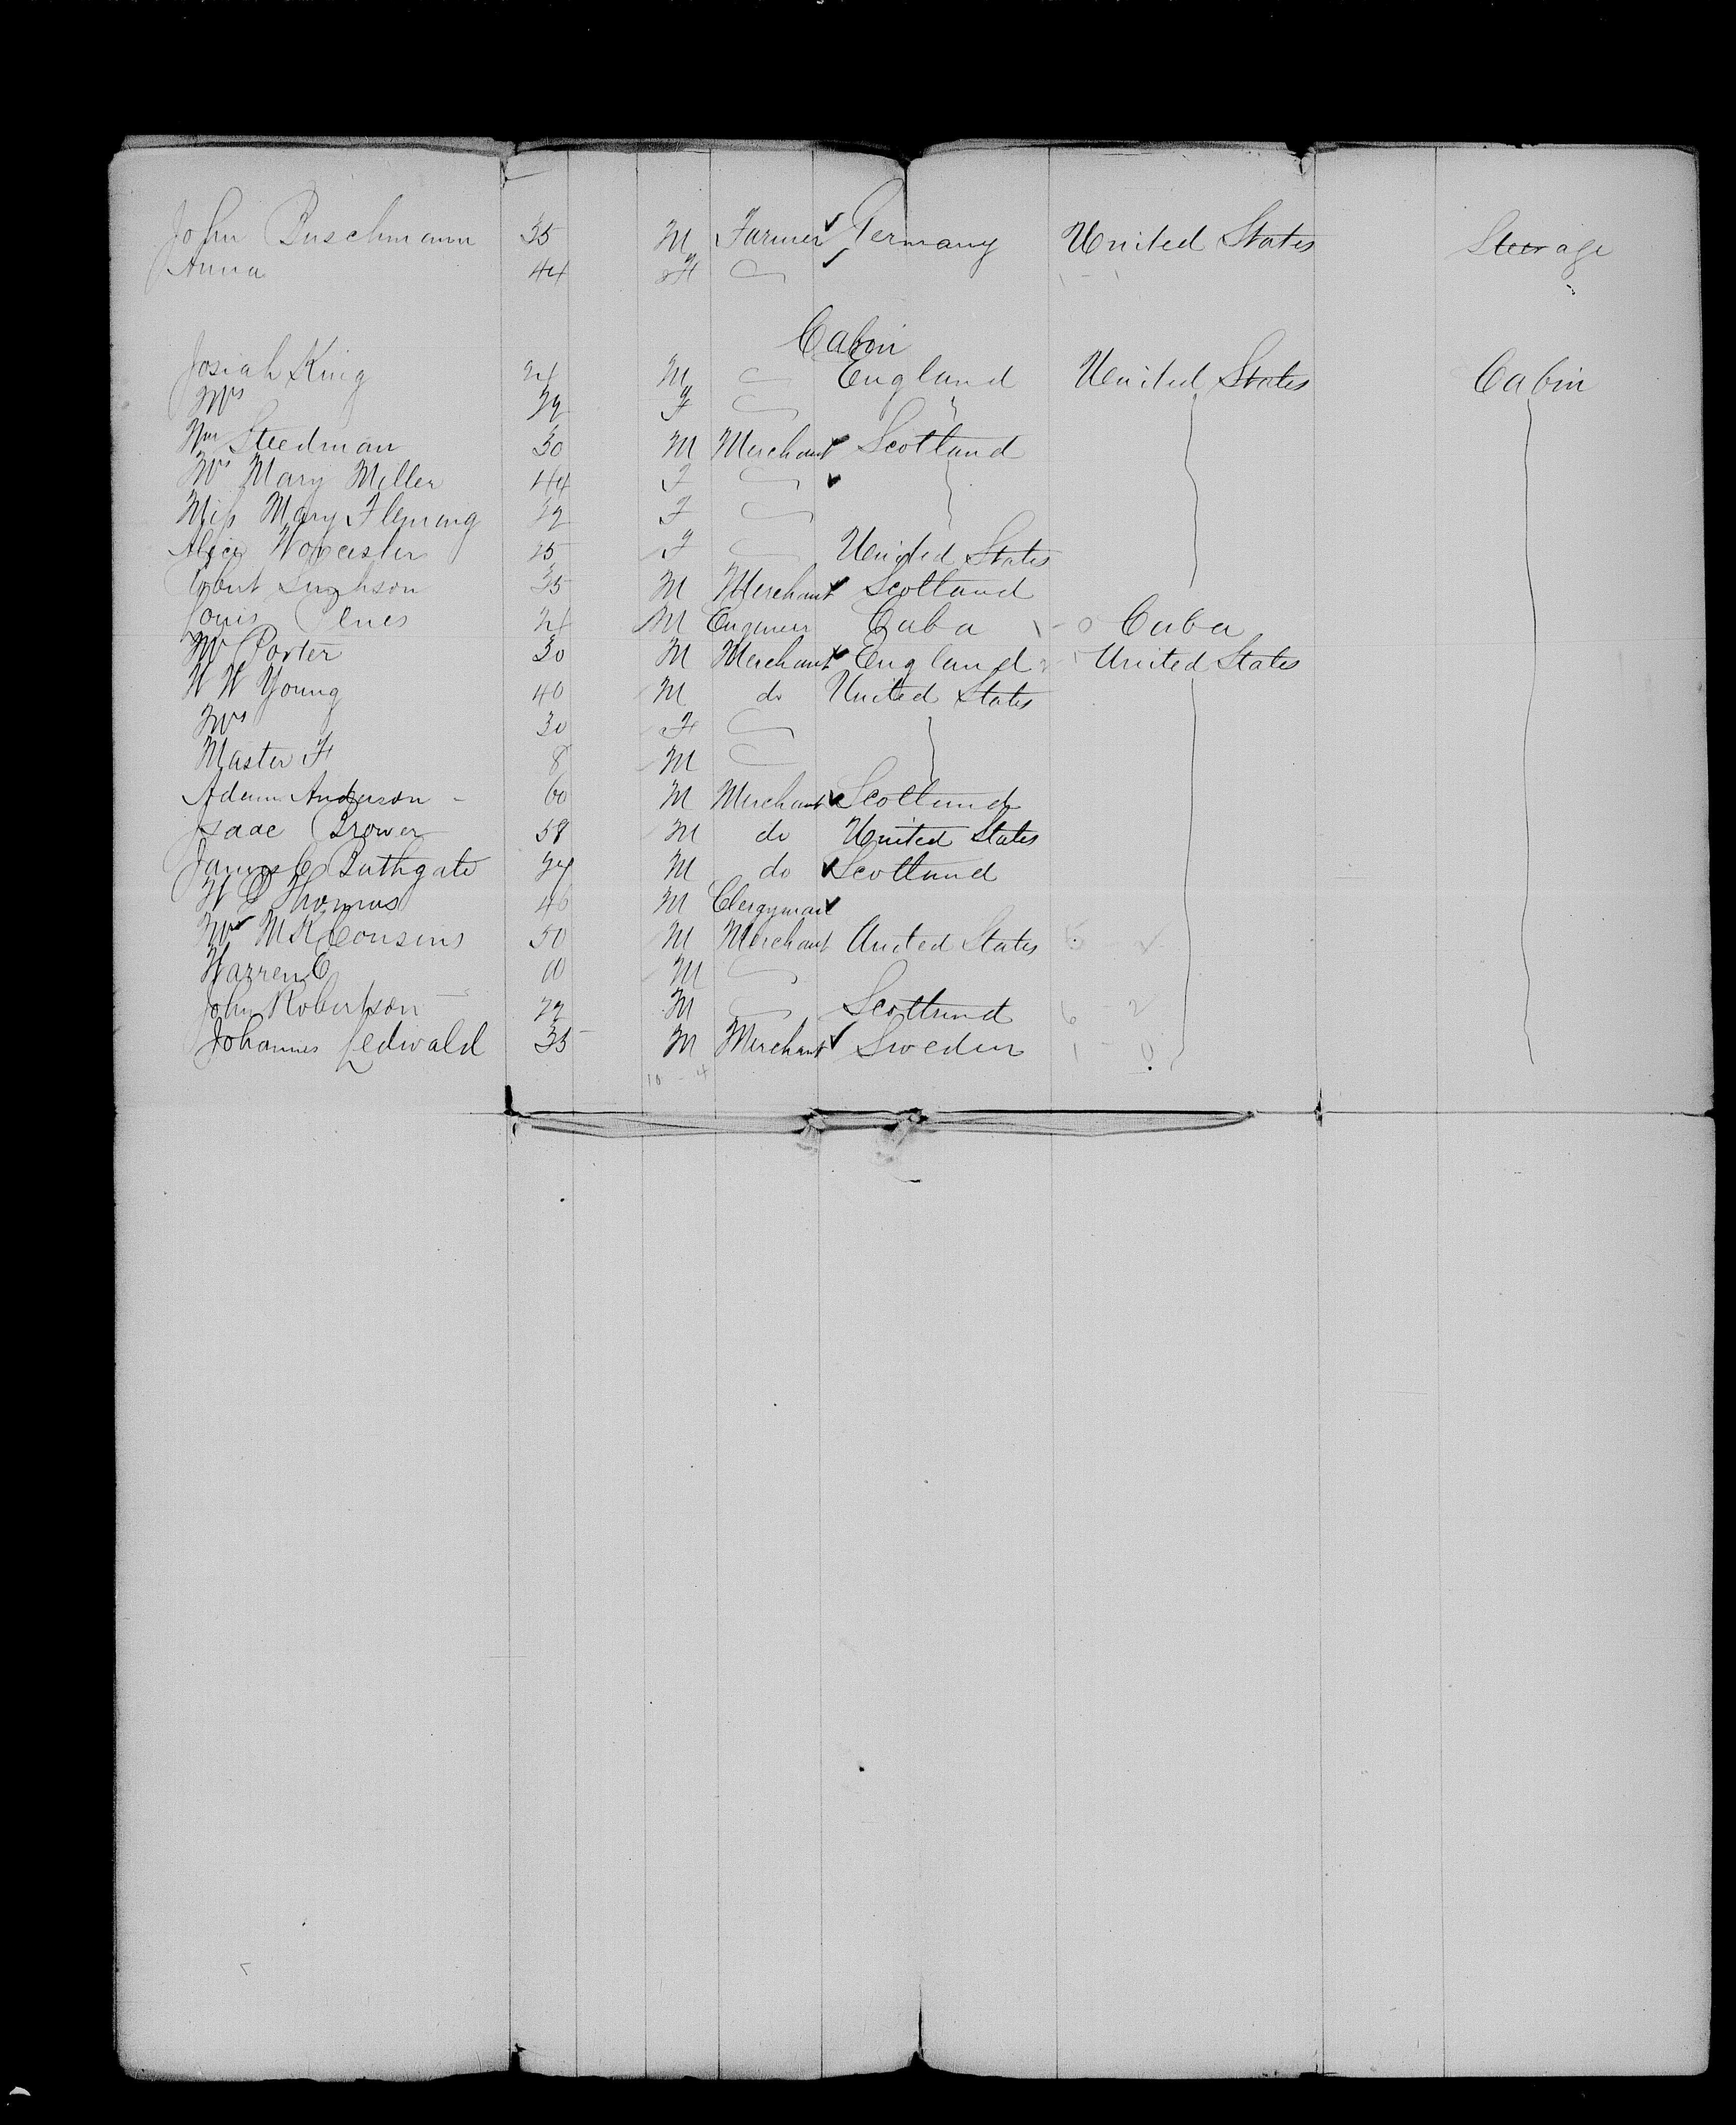 John Buschmann 35 M Farmer Germany United States Steerage
Anna 44 F
Cabin
Josiah King M England United States Cabin
Mrs F
Wm Steedman 30 M Merchant Scotland
Mrs Mary Miller 44 F
Miss Mary Fleming F
Alice Worcester 25 F United States
35 M Merchant Scotland
Louis M Engineer Cuba Cuba
Mr Porter 30 M Merchant England United States
W W Young 40 M do United States
Mrs 30 F
Master F 8 M
Adam Anderson 60 M Merchant Scotland
Isaac Brower 58 M do United States
James C Bathgate M do Scotland
W Thomas 40 M Clergyman
M K Cousins 50 M Merchant United States
Warren C M
John Robertson M Scotland 6 2
Johannes Ledwald 35 M Merchant Sweden 1 0
10 - 4